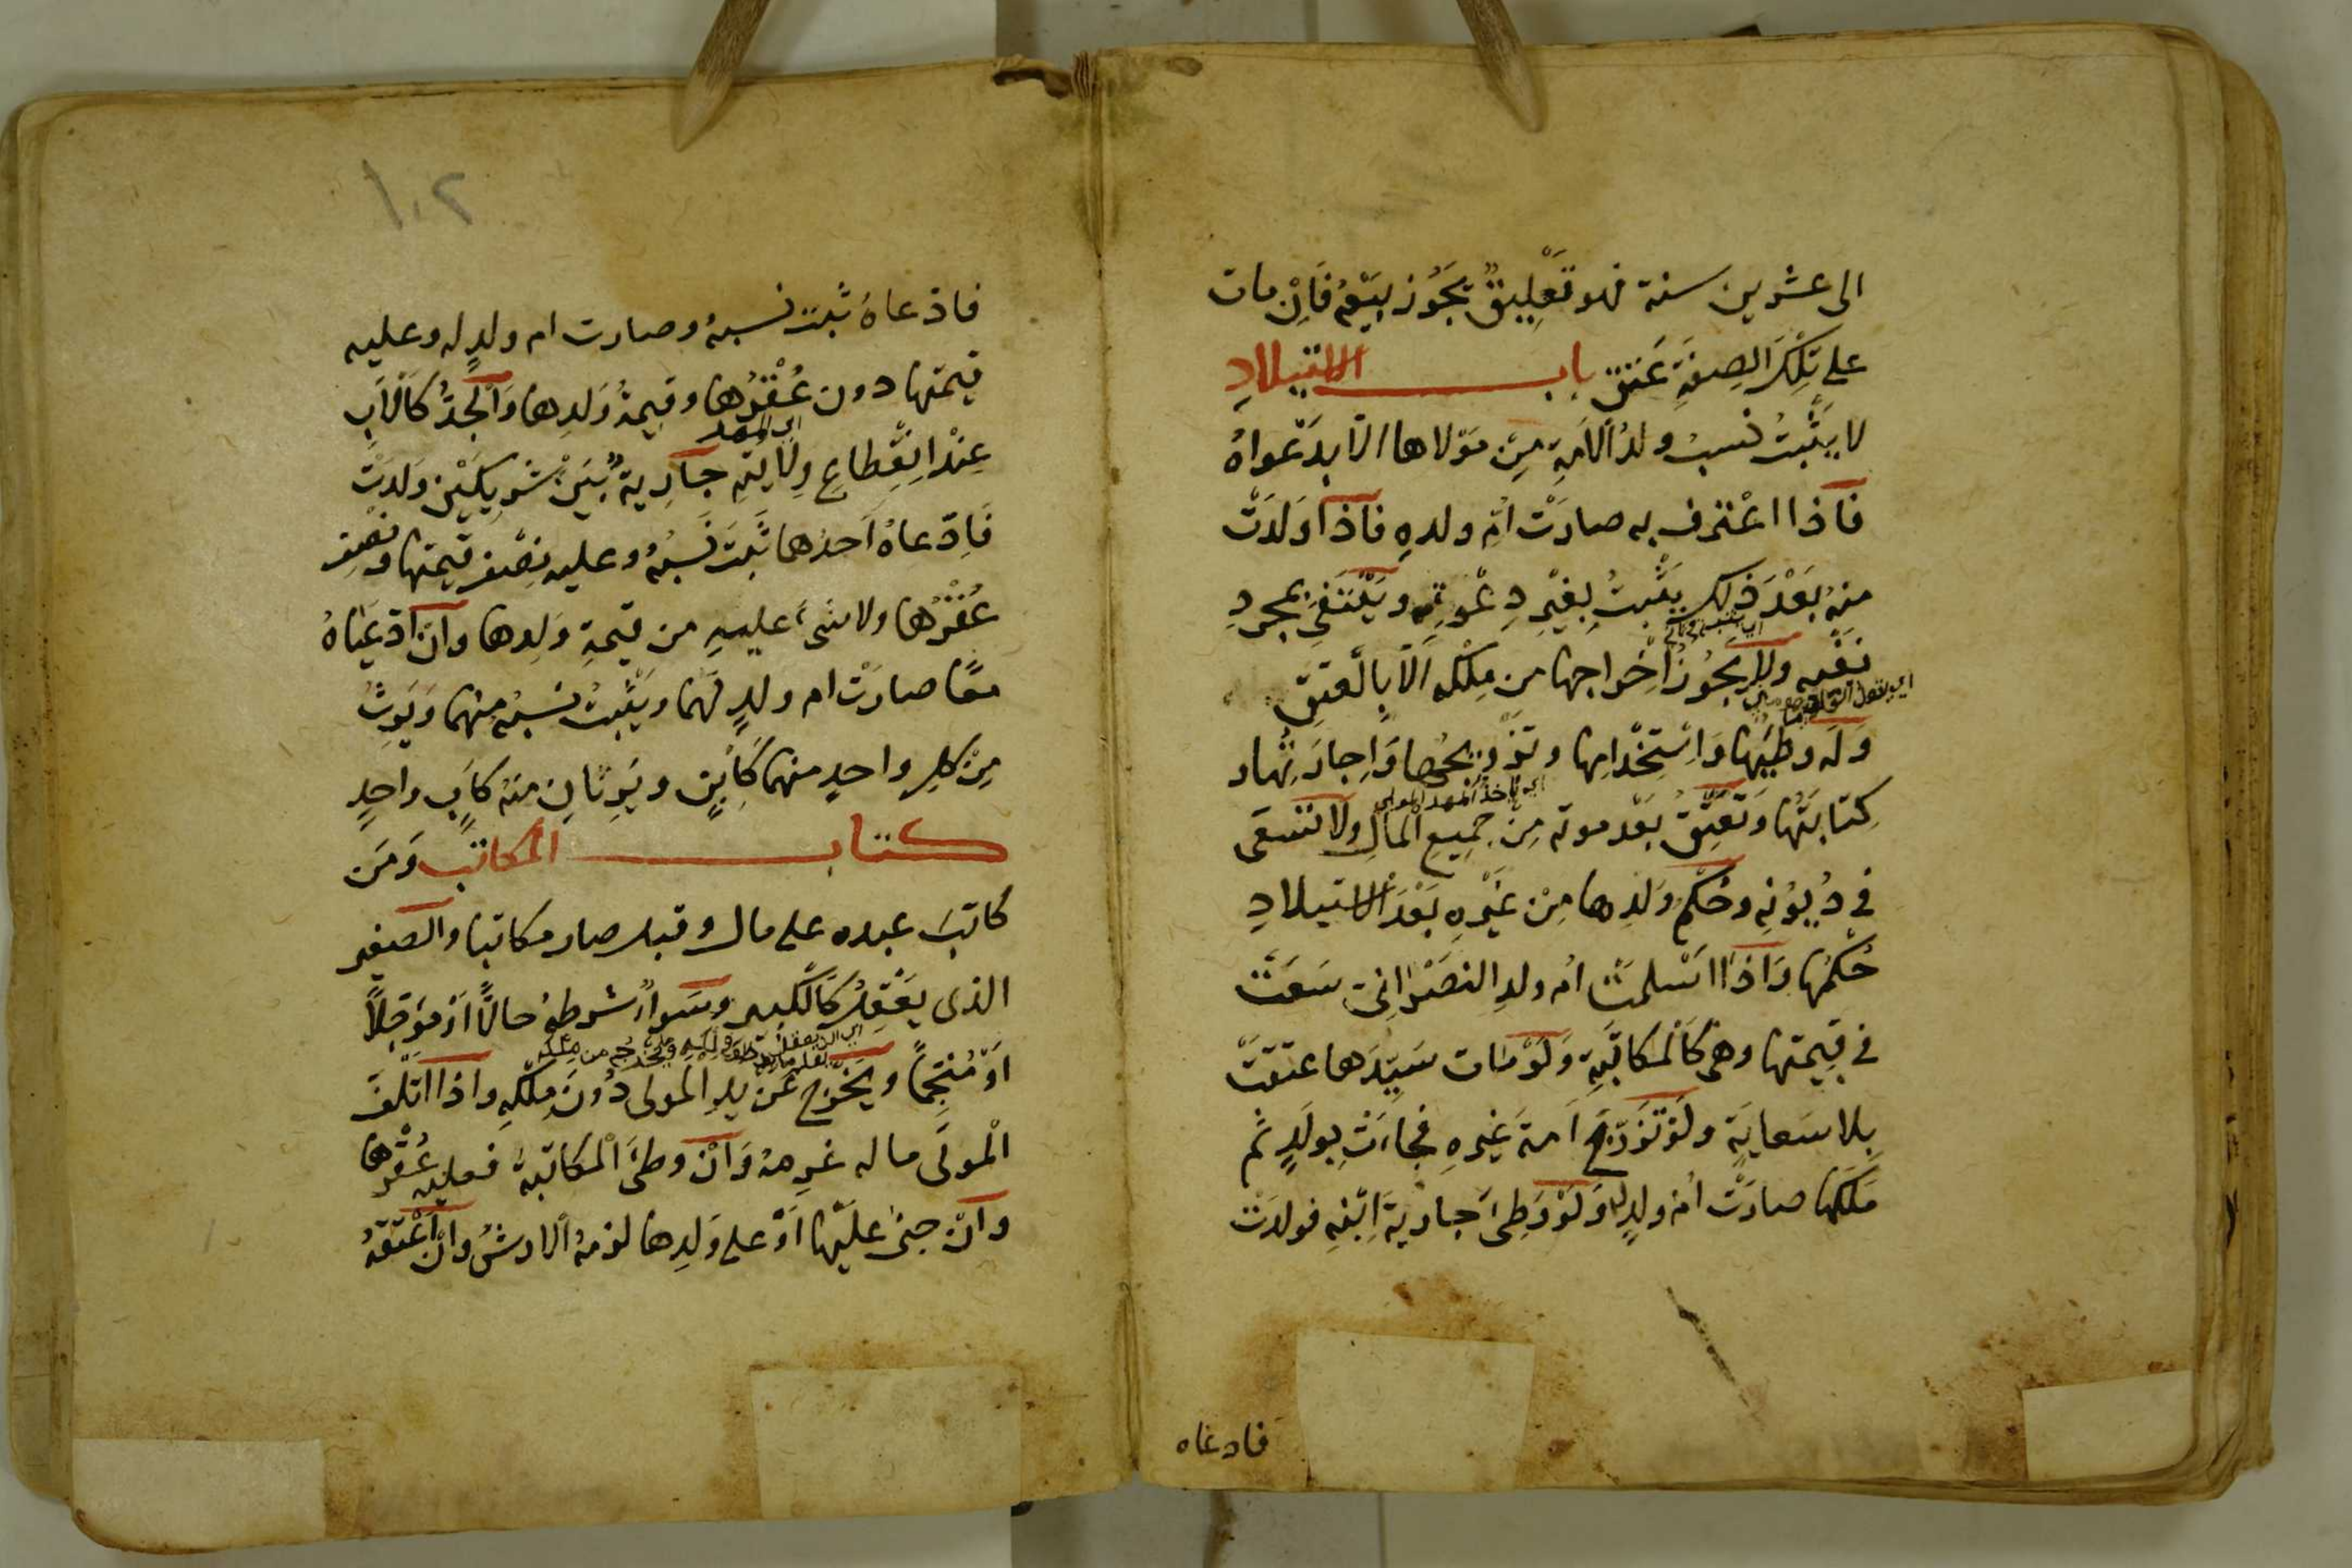 الى عشرين سنة فهو تَعْلِيقٌ يَجُوز بَيْعُهُ فَاِنْ مات
على تِلْكَ الصِفَةِ عَتق باب الاستيلادِ
لا يَثْبُتُ نسبُ ولدُ الاَمةِ مِن مَوْلاها الا بِدَعْواهُ
فاذا اعْتَرف به صارَتْ اُم ولدهِ فاذا وَلَدَتْ
منهُ بَعْدَ ذٰلك يَثْبُتُ بِغَيْرِ دِعْوةٍ وَيَنْتَفى بمجردِ
نَفْيِه ولا يَجُوزُ اخراجها من مِلْكه اَلاَّ بِالْعتقِ
وَلَه وطيُها وَاسْتِخْدامها وتَزْويجُها وَاِجارَتُها و
كِتابَتُها وَتَعْتِقُ بَعْد موته مِن جميعِ المالِ ولا تَسعَى
فى دُيُونِهِ وحُكْمُ وَلدِها مِنْ غَيْرِهِ بَعْدَ الاستيلادِ
حُكْمُها وَاذا اسْلمَتْ اُم ولدِ النصَرانىِّ سَعَتْ
فى قِيمتها وهى كَالْمكاتَبَةِ وَلَوْ مات سَيِّدَها عتقَتْ
بِلا سَعايَةٍ ولَوْ تَزَوَّجَ اَمةَ غَيرهِ فجاءَتْ بِولَدٍ ثم
مَلَكَها صارَتْ اُم ولدٍ له وَلَوْ وَطِئَ جارِيَةَ اِبْنِهِ فولدَتْ
فادعاه
١٠٢
فادعاهُ ثَبتَ نسبهُ وصارت ام ولدٍ له وعليه
قيمتها دون عُقْرُها وقيمةُ وَلدِها وَالْجَدُّ كَالاَبِ
اى المهر
عِنْدَ انقِطاعِ وِلايَتِهِ جارِيةٌ بَيْنَ شَرِيكَيْنِ وَلدَتْ
فَادّعاهُ اَحدُهما ثَبتَ نَسَبُهُ وعليه نِصْف قيمتها ونصْف
عُقْرُها ولا شَىءَ عليهِ من قيمةِ وَلدِها وانْ ادّعياهُ
معًا صارَتْ ام ولدٍ لَهُما ويَثْبتُ نسبهُ مِنْهما وَيَرِثُ
مِنْ كلِ واحدٍ منهما كَابنٍ ويَرِثانِ منهُ كَابٍ واحِدٍ
كتاب المكاتَب وَمَن
كاتبَ عبده على مال وقبل صار مكاتبا والصغير
الذى يَعْقِلُ كَالْكَبير وسَواءٌ شَرطهُ حالاًّ اَوْ مؤجلاً
اَوْ مُنَجَّمًا ويَخْرج عَنْ يدِ المولى دُونَ مِلْكهِ واذا اَتْلَفَ
الْمولَى ماله غرمهُ وَانْ وطئَ المكاتبةَ فعليه عُقْرُها
وَانْ جنىٰ عليْها اَوْ على وَلدِها لزمهُ الارشُ وانْ اَعْتَقهُ